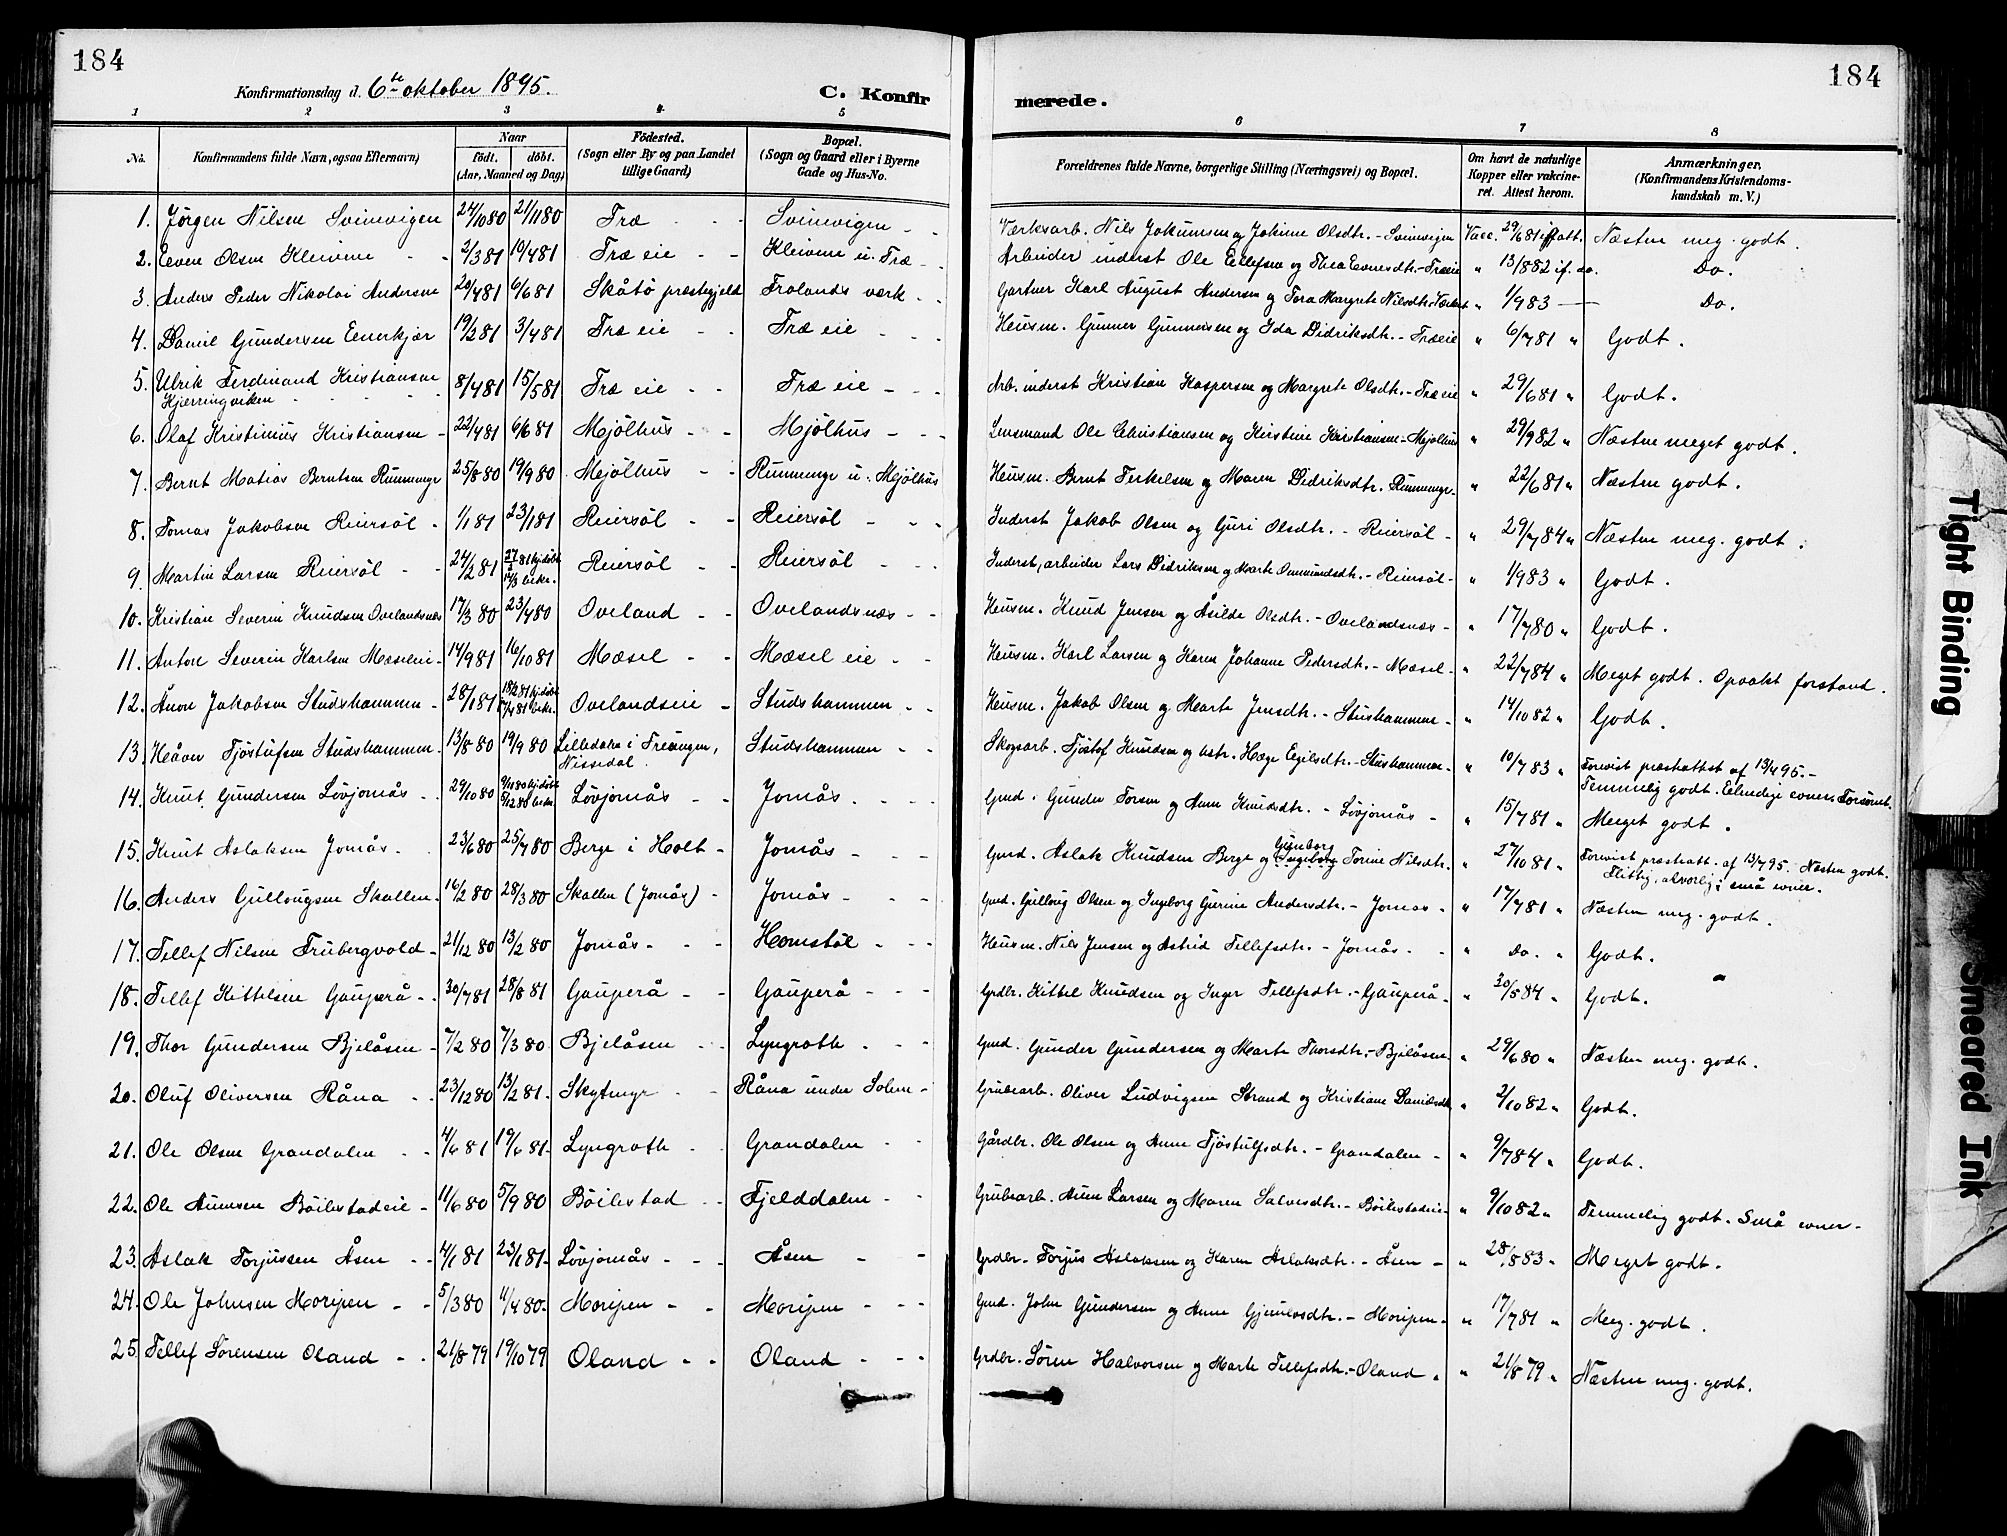 184
Konfirmationsdag d. 6te oktober 1895.
C. Konfir
merede.
184
1 2 3 4 5 6 7 8
No.
Konfirmandens fulde Navn, ogsaa Efternavn)
Naar
födt. döbt.
(Aar, Maaned og Dag)
Födested.
(Sogn eller By og paa Landet
tillige Gaard)
Bopæl.
(Sogn og Gaard eller i Byerne
Gade og Hus-No.
Forældrenes fulde Navne, borgerlige Stilling (Næringsvei) og Bopæl.
Om havt de naturlige
Kopper eller vakcine-
ret. Attest herom.
Anmærkninger.
(Konfirmandens Kristendoms-
kundskab m. V.)
1. Jørgen Nilsen Svinvigen 24/10 80 21/11 80 Træ Svinvigen Værksarb. Nils Jokumsen og Jokine Olsdtr. - Svinvigen Vacc. 29/6 81 if. att. Næsten meg. godt.
2. Even Olsen Kleivene 2/3 81 10/4 81 Træ eie Kleivene u. Træ Arbeider inderst Ole Eellefsen og Thea Evensdtr. - Træeie " 13/8 82 if. do. Do.
3. Anders Peder Nikolai Andersen 20/4 81 6/6 81 Skåtö præstegjeld Frolands værk Gartner Karl August Andersen og Tora Margrete Nilsdtr. " 1/9 83 Do.
4. Daniel Gundersen Eenerkjær 19/2 81 3/4 81 Træ eie Træ eie Husm. Gunner Gunnersen og Ida Didriksdtr. - Træeie " 6/7 81 " Godt.
5. Ulrik Ferdinand Kristiansen 8/4 81 15/5 81 Træ eie Træ eie Arb. inderst Kristian Kaspersen og Margrete Olsdtr. - Træ eie " 29/6 81 " Godt.
Kjærringviken
6. Olaf Kristinius Kristiansen 22/4 81 6/6 81 Mjölhus Mjölhus Lensmand Ole Christiansen og Kirstine Kristiansen - Mjölhus " 29/9 82 " Næsten meget godt.
7. Bernt Matias Berntsen Runnmyr 25/8 80 19/9 80 Mjölhus Runnmyr u. Mjölhus Husm. Bernt Terkelsen og Maren Didriksdtr. Runnmyr " 22/6 81 " Næsten godt.
8. Tomas Jakobsen Reiersöl 1/1 81 23/1 81 Reiersöl Reiersöl Inderst Jakob Olsen og Guri Olsdtr. - Reiersöl " 29/7 84 " Næsten meg. godt.
9. Martin Larsen Reiersöl 24/2 81 27/2 81 hj. döbt 14/3 bekr. Reiersöl Reiersöl Inderst, arbeider Lars Didriksen og Marte Ommundsdtr. - Reiersöl " 1/9 83 " Godt.
10. Kristian Severin Knudsen Ovelandsnæs 17/3 80 23/4 80 Oveland Ovelandsnæs Husm. Knud Jensen og Åsilde Olsdtr. - Ovelandsnæs " 17/7 80 " Godt.
11. Anton Severin Karlsen Mæseleie 14/9 81 16/10 81 Mæsel Mæsel eie Husm. Karl Larsen og Karen Johanne Pedersdtr. - Mæsel " 22/7 84 " Meget godt. Opvakt forstand.
12. Anon Jakobsen Studshammen 28/1 81 18/2 81 hj. döbt 17/4 81 bekr. Ovelandseie Studshammen Husm. Jakob Olsen og Marte Jensdtr. - Stushammen " 14/10 82 " Godt.
13. Håven Fjöstufsen Studshammen 13/8 80 19/9 80 Lilledalen i Treungen, Nissedal. Studshammen Skogsarb. Fjöstof Knudsen og hstr. Hæge Egilsdtr. - Stushammen " 10/7 83 " Forevist præsteattest af 13/7 95. -
Temmelig godt. Elendige evner. Forsömt.
14. Knut Gundersen Lövjomås 29/10 80 9/11 80 hj. döbt 5/12 80 bekr. Lövjomås Jomås Gmd. Gunder Torsen og Anne Knudsdtr. - Lövjomås " 15/7 81 " Meget godt.
15. Knut Aslaksen Jomås 23/6 80 25/7 80 Berge i Holt Jomås Gmd. Aslak Knudsen Berge og Ingeborg Gunborg Torine Nilsdtr. " 27/10 81 " Forevist præsteatt. af 13/7 95. Næsten godt.
Flittig, alvorlig; små evner.
16. Anders Gullougsen Skallen 16/2 80 28/3 80 Skallen (Jomås) Jomås Gmd. Gulloug Olsen og Ingeborg Gurine Andersdtr. - Jomås " 17/7 81 " Næsten meg. godt.
17. Tellef Nilsen Trubergvold 21/12 80 13/2 80 Jomås Homstöl Husm. Nils Jensen og Astrid Tellefsdtr. - Jomås " Do. " Godt.
18. Tellef Kittelsen Gauperå 30/7 81 28/8 81 Gauperå Gauperå Grdbr. Kittel Knudsen og Inger Tellefsdtr. - Gauperå " 30/5 84 " Godt.
19. Thor Gundersen Bjelåsen 7/2 80 7/3 80 Bjelåsen Lyngroth Gmd. Gunder Gundersen og Marte Thorsdtr. - Bjelåsen " 29/6 80 " Næsten meg. godt.
20. Oluf Oliversen Råna 23/12 80 13/2 81 Skytmyr Råna under Solem Grubearb. Oliver Ludvigsen Strand og Kristiane Danielsdtr " 2/10 82 " Godt.
21. Ole Olsen Grandalen 4/6 81 19/6 81 Lyngroth Grandalen Gårdbr. Ole Olsen og Anne Fjöstulfsdtr. - Grandalen " 9/7 84 " Godt.
22. Ole Aunesen Böilestadeie 11/6 80 5/9 80 Böilestad Fjelddalen Grubearb. Aune Larsen og Maren Salvesdtr. - Böilestadeie " 9/10 82 " Temmelig godt. Små evner
23. Aslak Torjussen Åsen 4/1 81 23/1 81 Lövjomås Åsen Grdbr. Torjus Aslaksen og Karen Aslaksdtr. - Åsen " 28/8 83 " Meget godt.
24. Ole Johnsen Moripen 5/3 80 11/4 80 Moripen Moripen Gmd. John Gundersen og Anne Gjeruldsdtr. - Moripen " 17/7 81 " Meg. godt.
25. Tellef Sörensen Oland 21/8 79 19/10 79 Oland Oland Grdbr. Sören Halvorsen og Marte Tellefsdtr. - Oland " 21/8 79 " Næsten meg. godt.
Tight Binding
Smeared Ink